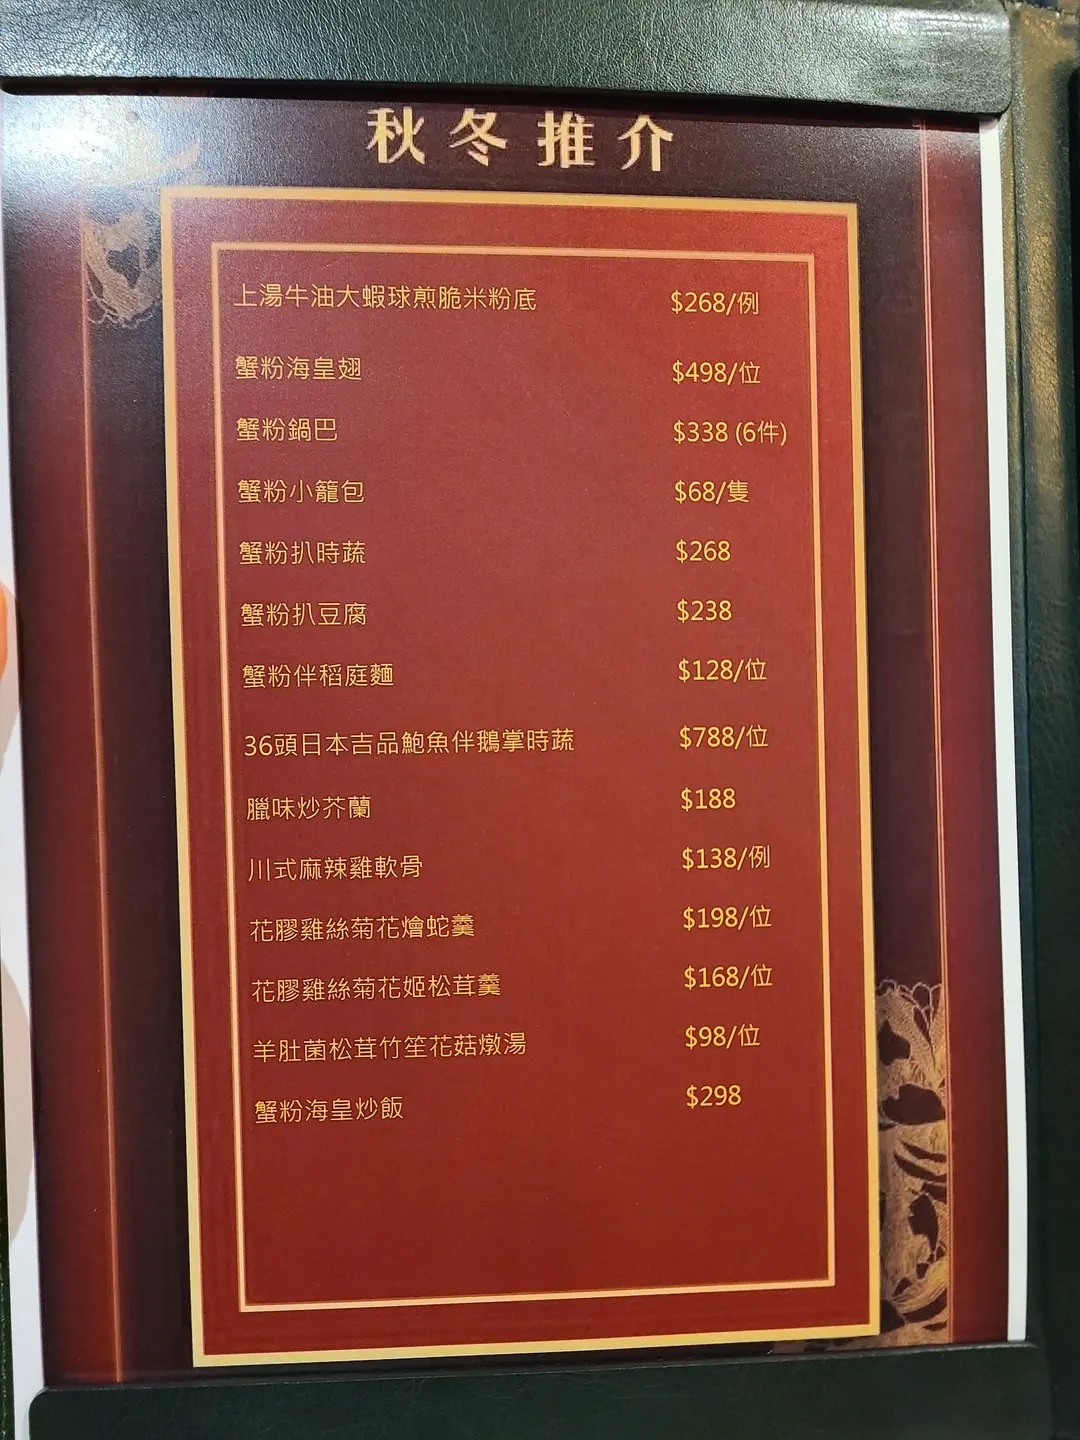 秋冬推介
上湯牛油大蝦球煎脆米粉底 $268/例
蟹粉海皇翅 $498/位
蟹粉鍋巴 $338 (6件)
蟹粉小籠包 $68/隻
蟹粉扒時蔬 $268
蟹粉扒豆腐 $238
蟹粉伴稻庭麵 $128/位
36頭日本吉品鮑魚伴鵝掌時蔬 $788/位
臘味炒芥蘭 $188
川式麻辣雞軟骨 $138/例
花膠雞絲菊花燴蛇羹 $198/位
花膠雞絲菊花姬松茸羹 $168/位
羊肚菌松茸竹笙花菇燉湯 $98/位
蟹粉海皇炒飯 $298